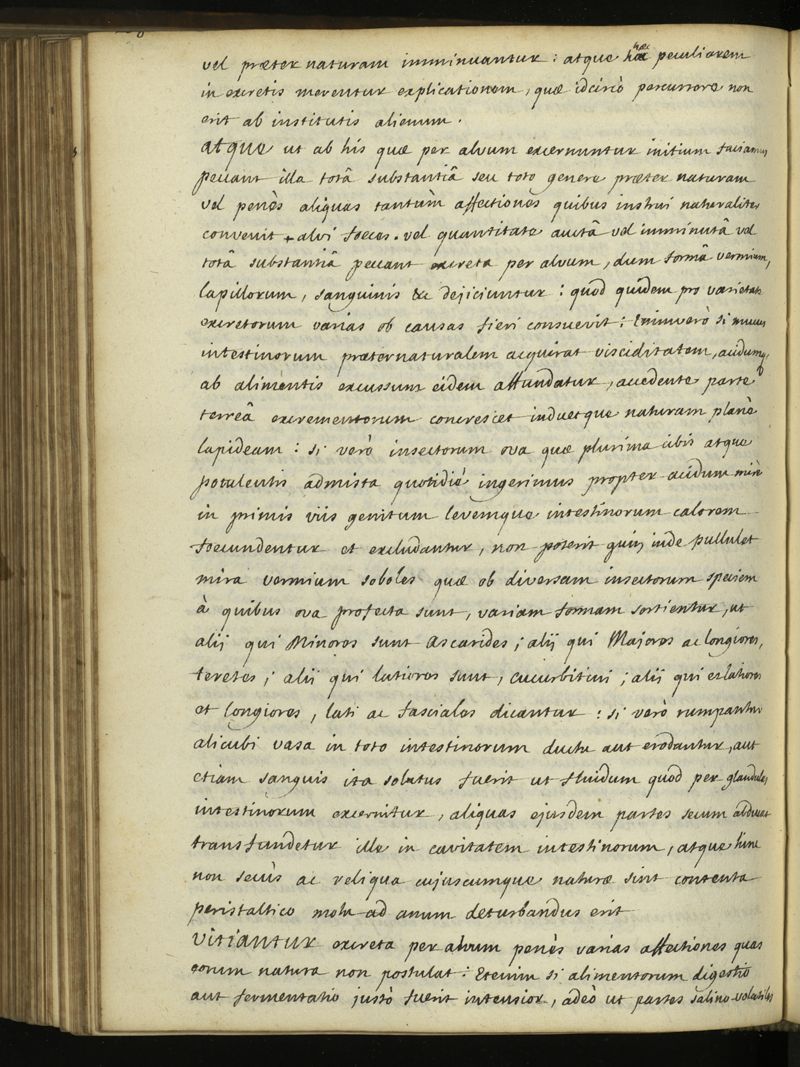 vel præter naturam imminuantur : atque hæc peculiarem
in excretis merentur explicationem, quæ idcircò percurrere non
erit ab institutis alienum.
atque ut ab his quæ per alvum excernuntur initium faciamus
peccant illa totâ substantiâ seu toto genere præter naturam
vel penès aliquas tantùm affectiones quibus instrui naturaliter
convenit alvi foeces. vel quantitate auctâ vel imminutâ vel
totâ substantiâ peccant excreta per alvum, dum formâ vermium,
lapillorum, sanguinis &c dejiciuntur : quod quidem pro varietate
excretorum varias ob causas fieri consuevit : Enimverò si mucus
intestinorum præternaturalem acquirat visciditatem, acidumq,
ab alimentis excussum eidem affundatur, accedente parte
terreâ excrementorum concrescet induetque naturam planè
lapideam : si verò insectorum ova quæ plurima cibis atque
potulentis admista quotidiè ingerimus propter acidum
in primis viis genitum levemque intestinorum calorem
foecundentur et excludantur, non poterit quin inde pullulet
mira vermium soboles quæ ob diversam insectorum speciem
à quibus ova profecta sunt, variam formam sortientur, ut
alij qui Minores sunt ascarides ; alij qui Majores ac longiores,
teretes ; alij qui latiores sunt, cucurbitini ; alij qui et latiores
et longiores, lati ac fasciales dicantur : si verò rumpantur
alicubi vasa in toto intestinorum ductu aut erodantur, aut
etiam sanguis ita solutus fuerit ut fluidum quod per glandulas
intestinorum excernitur, aliquas ejusdem partes secum abducat
transfundetur ille in cavitatem intestinorum, atque hinc
non secùs ac reliqua cujuscumque naturæ sint contenta
peristaltico motu ad anum deturbandus erit
vitiantur excreta per alvum penès varias affectiones quas
eorum natura non postulat : Etenim si alimentorum digestio
aut fermentatio justò fuerit intensior, adeò ut partes salino-volatiles